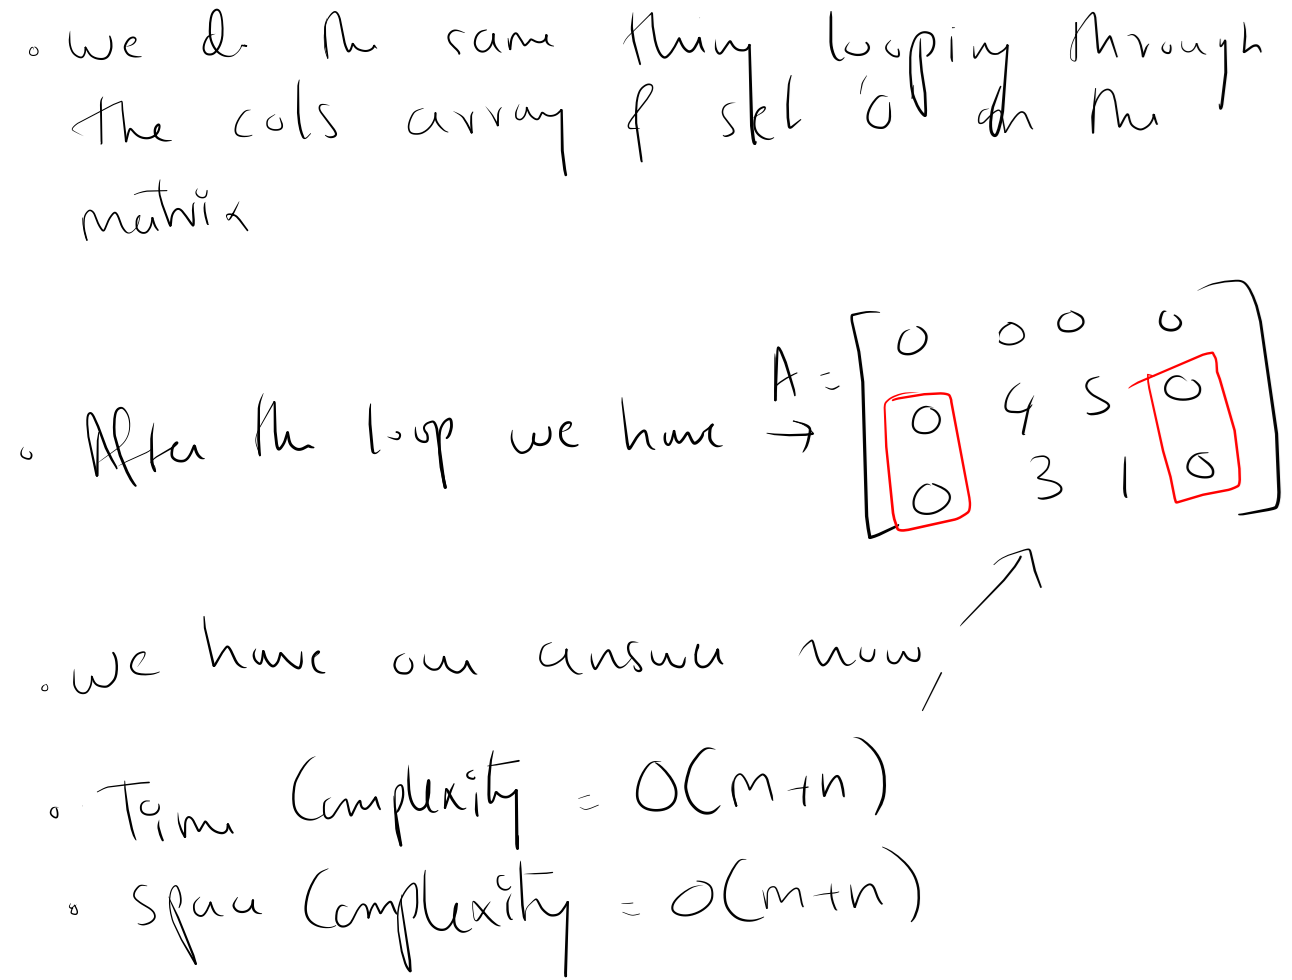 • we do the same thing looping through
the cols array & set '0' on the
matrix
• After the loop we have → A = [ 0 0 0 0
0 4 5 0
0 3 1 0 ]
• we have our answer now,
• Time Complexity = O(m+n)
• Space Complexity = O(m+n)